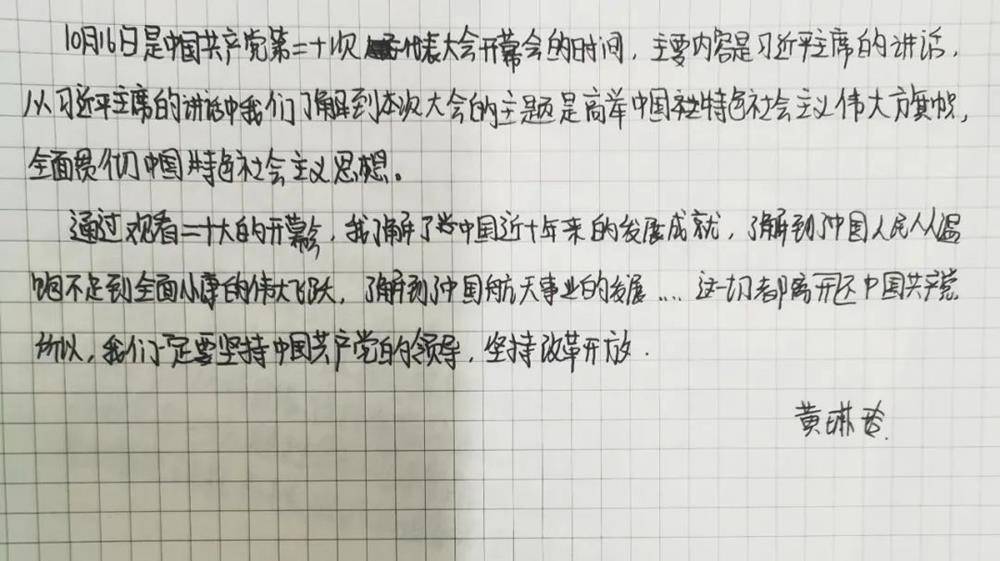 10月16日是中国共产党第二十次代表大会开幕会的时间，主要内容是习近平主席的讲话，
从习近平主席的讲话中我们了解到本次大会的主题是高举中国特色社会主义伟大旗帜，
全面贯彻中国特色社会主义思想。
通过观看二十大的开幕会，我了解了中国近十年来的发展成就，了解到了中国人民从温
饱不足到全面小康的伟大飞跃，了解到了中国航天事业的发展....这一切都离开不中国共产党
所以，我们一定要坚持中国共产党的领导，坚持改革开放.
黄琳